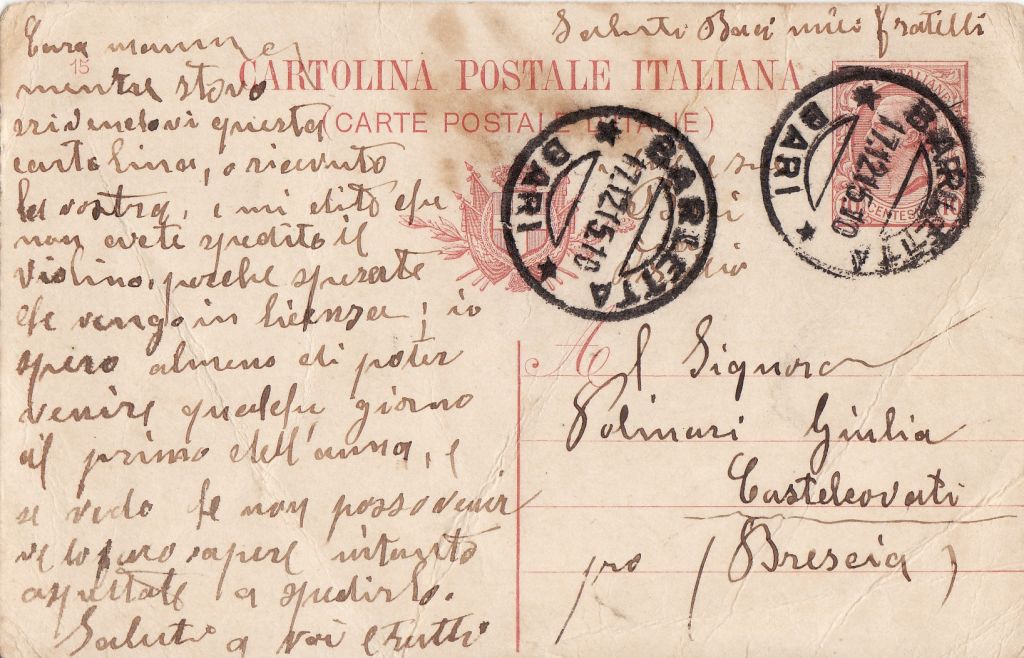 Saluti Baci miei fratelli
15
CARTOLINA POSTALE ITALIANA
(CARTE POSTALE D'ITALIE)
Cara mamma
mentre stavo
scrivendovi questa
cartolina, o ricevuto
la vostra, e mi dite che
non avete spedito il
violino, perche sperate
che vengo in licenza; io
spero almeno di poter
venire qualche giorno
al primo dell'anno, e
se vedo che non posso venir
ve lo faro sapere intanto
aspettate a spedirlo.
Saluti a voi e tutti
BARLETTA
17.12.15.10
BARI
BARLETTA
17.12.15.10
BARI
CENTES
A l Signora
Polinari Giulia
Castelcovati
pro (Brescia)